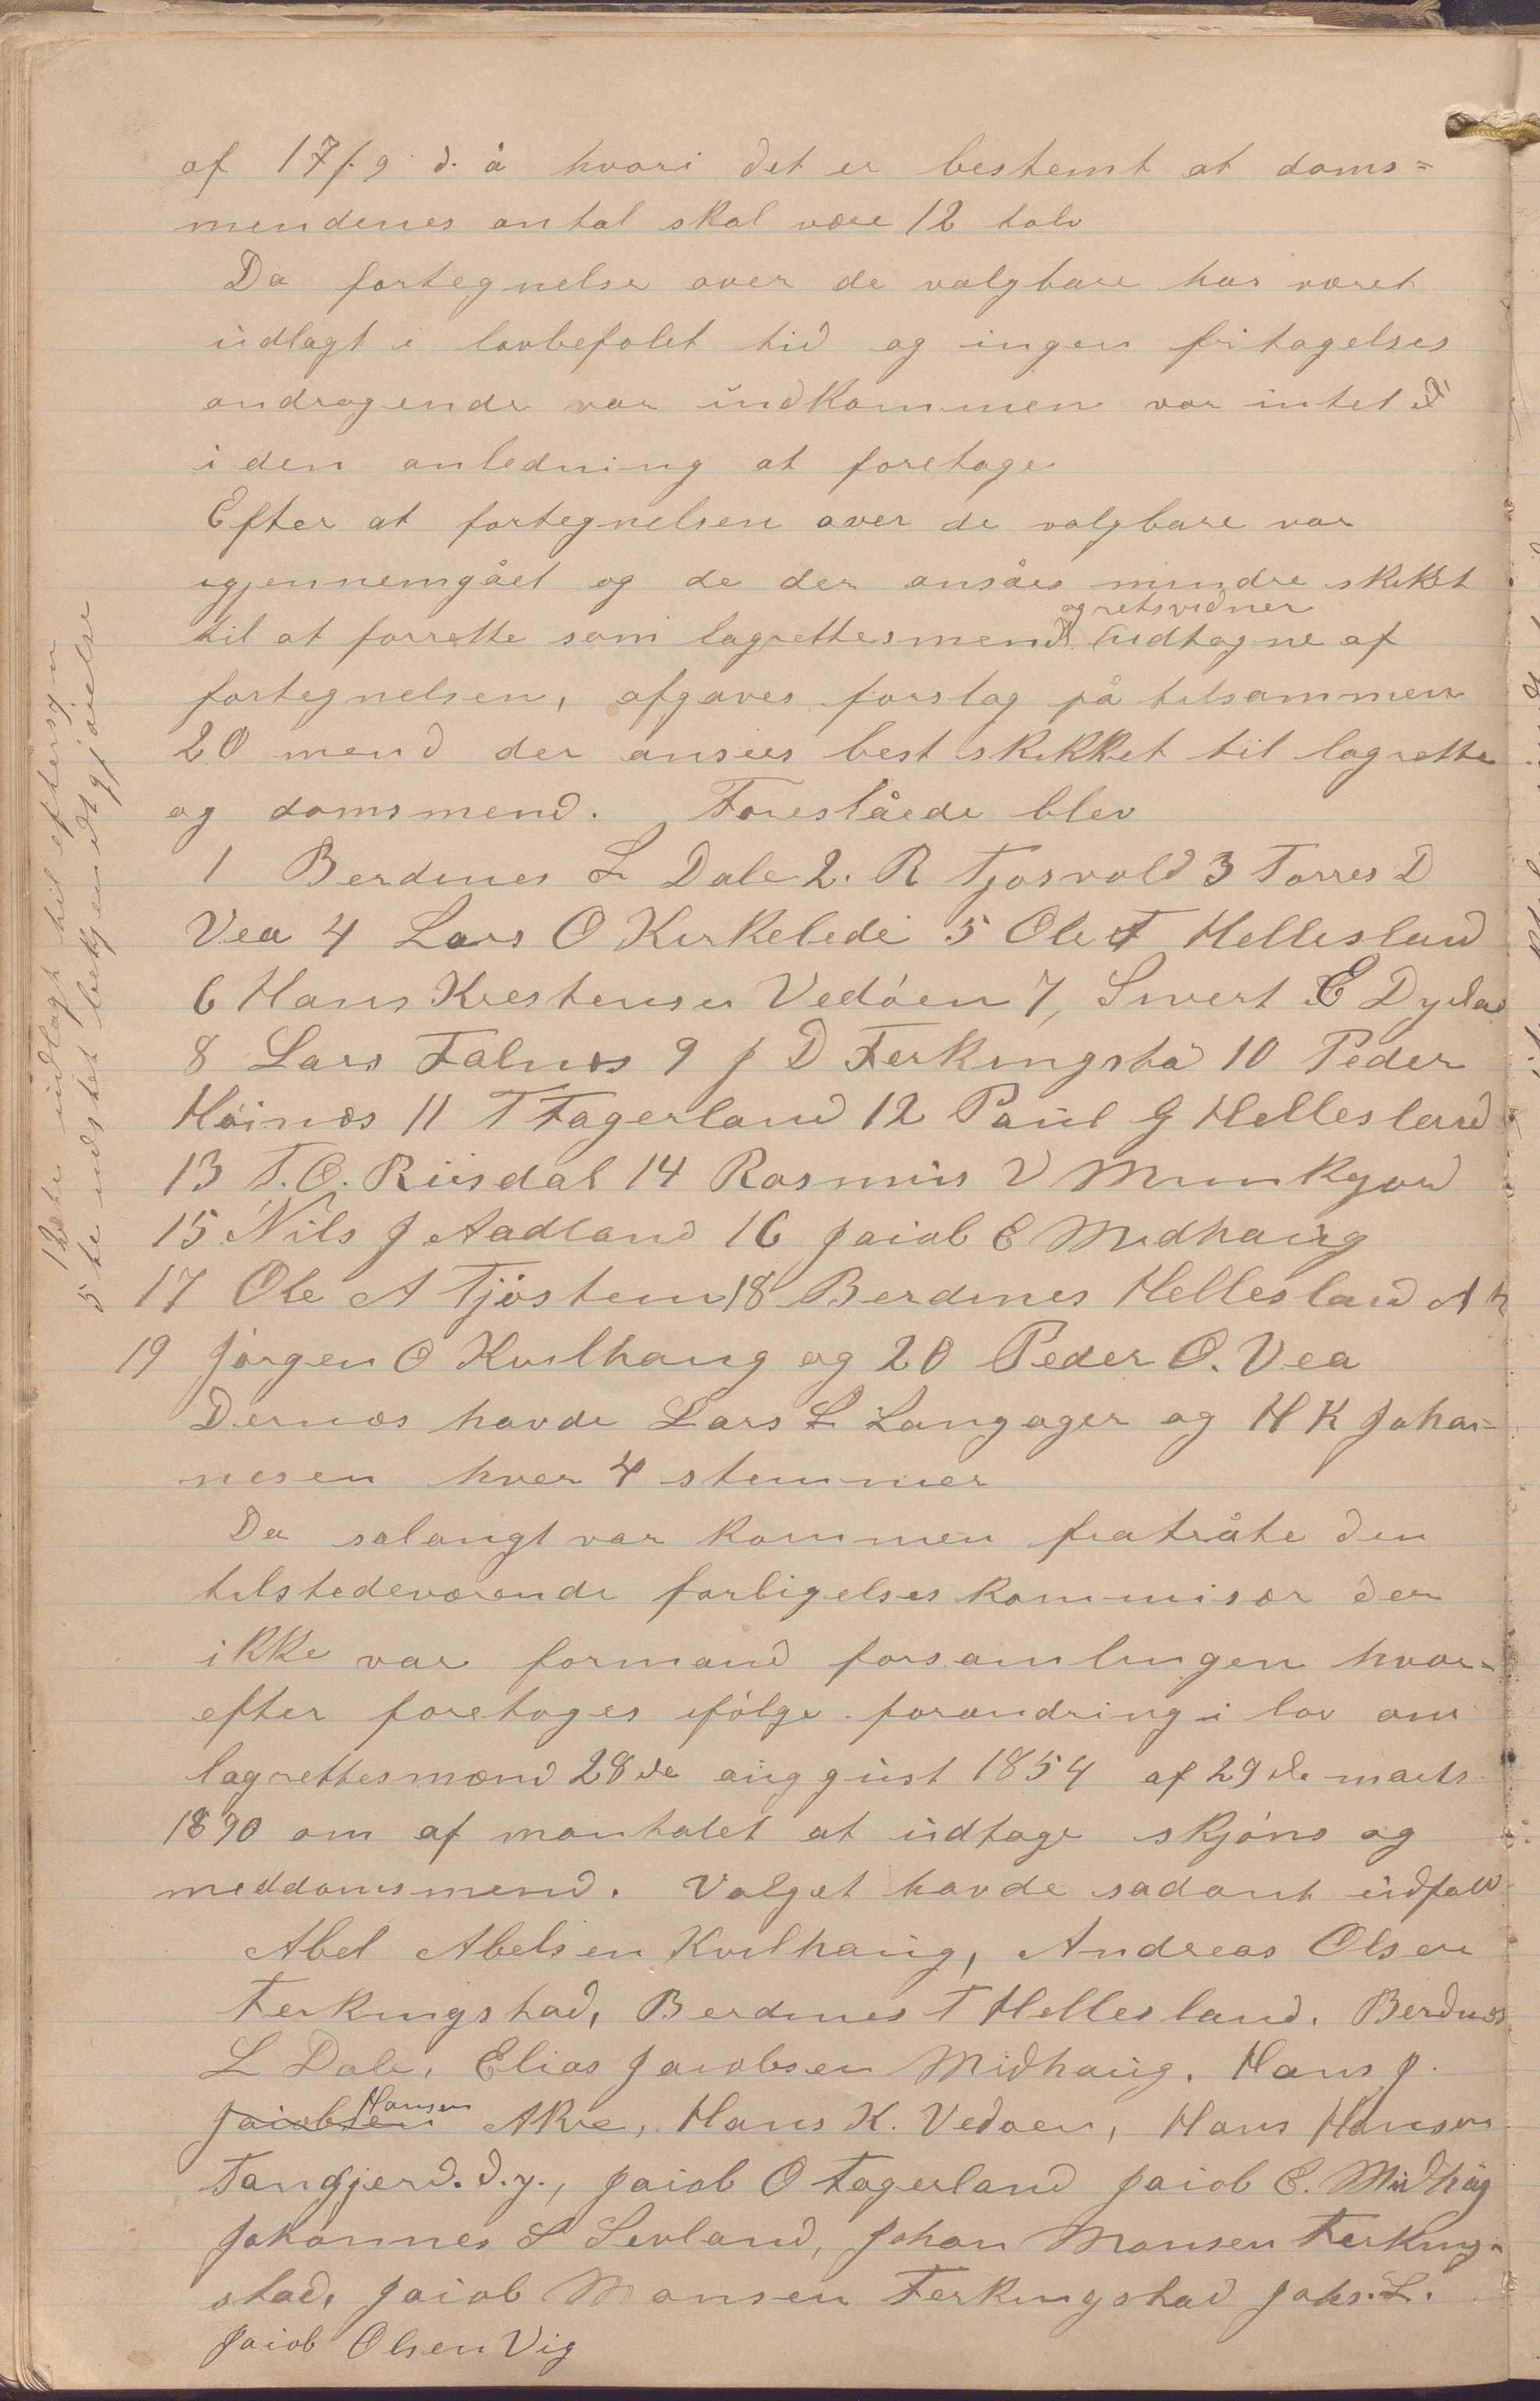 af 17/9 d. å hvori det er bestemt at doms=
mendenes antal skal være 12 tolv
Da fortegnelse over de valgbare har været
udlagt i lovbefalet tid og ingen fritagelses
andragende var indkommen var intet
i den anledning at foretage
Efter at fortegnelsen over de valgbare var
igjennemgået og de der ansåes mindre skikket
og retsvidner
til at forrette som lagrettesmend udtagne af
fortegnelsen, afgaves forslag på tilsammen
20 mend der ansees best skikket til lagrette
og domsmend. Foreslåede blev
1 Berdines L Dale 2. R Tjosvold 3 Torres D
Vea 4 Lars O Kirkelede 5 Ole T Hellesland
6 Hans Krestensen Vedöen 7, Sivert E Dyrla
8 Lars Falnes 9 J D Ferkingsta 10 Peder
Höines 11 T Fagerland 12 Paul G Hellesland
13 T. O. Riisdal 14 Rasmus V Munkejord
15 Nils J Aadland 16 Jaiob E Midhaug
17 Ole A Tjöstem 18 Berdines Hellesland
19 Jörgen O Kvilhaug og 20 Peder O. Vea
Dernes havde Lars L Langager og H K Johan-
nesen hver 4 stemmer
Da salangt var kommen fratråte den
tilstedeværende forligelses kommisær der
ikke var formand forsamlingen hvor-
efter foretoges ifölge forandring i lov om
lagrettesmænd 28de auggust 1854 af 29de marts
1890 om af mantalet at udtage skjöns og
meddomsmend. Valget havde sadant udfald
Abel Abelsen Kvilhaug, Andreas Olsen
Ferkingstad, Berdines T Hellesland. Berdines
L Dale, Elias Jacobsen Midhaug. Hans J.
Hansen
Jaiobsen Akre, Hans K. Vedöen, Hans Hansen
Tangjerd. d.y., Jaiob O Fagerland Jaiob E. Midhög
Johannes S Sevland, Johan Monsen Ferking-
stad, Jaiob Monsen Ferkingstad Johs. L.
Jaiob Olsen Vig
12te udlagt til eftersyn
5te udstet bekjendtgjörelse